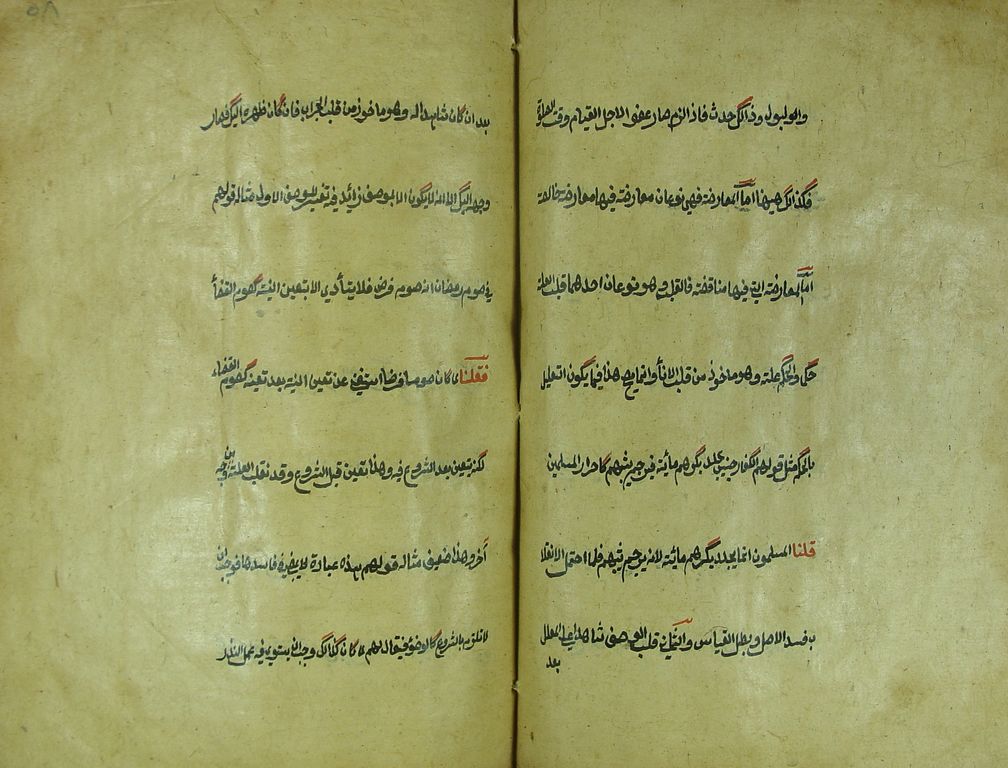 والبول وذلك حدث فاذا لزم صار عفوا لاجل القيام وقت الصلوة
فكذلك هيهنا اما المعارضة فهي نوعان معارضة فيها معارضة خالصة
اما المعارضة التي فيها مناقضة فالقلب وهو نوعان احدهما قلب العلة
حكما والحكم علة وهو ماخوذ من قلب الاناء وانما يصح هذا فيما يكون التعليل
بالحكم مثل قولهم الكفار جنس يجلد بكرهم مائة فيرجم ثيبهم كاحرار المسلمين
قلنا المسلمون انما يجلد بكرهم مائة لانه يرجم ثيبهم فلما احتمل الانقلا
ب فسد الاصل وبطل القياس والثاني قلب الوصف شاهدا على المعلل
بعد
بعد ان كان شاهدا له وهو ماخوذ من قلب الجراب فانه كان ظهره اليك فصار
وجهه اليك الا انه لا يكون الا بوصف زائد فيه تفسير للوصف الاول مثاله قولهم
في صوم رمضان انه صوم فرض فلا يتأدى الا بتعين النية كصوم القضأ
فقلنا لما كان صوما فرضا استغنى عن تعين النية بعد تعينه كصوم القضاء
لكنه يتعين بعد الشروع فيه وهذا تعين قبل الشروع وقد تقلب العلة من وجه
آخر وهذا ضعيف مثاله قولهم هذه عبادة لا يمضى في فاسدها فوجب ان
لا تلزم بالشروع كالوضوء فيقال لهم لما كان كذلك وجب ان يستوي فيه عمل النذر
٥٨